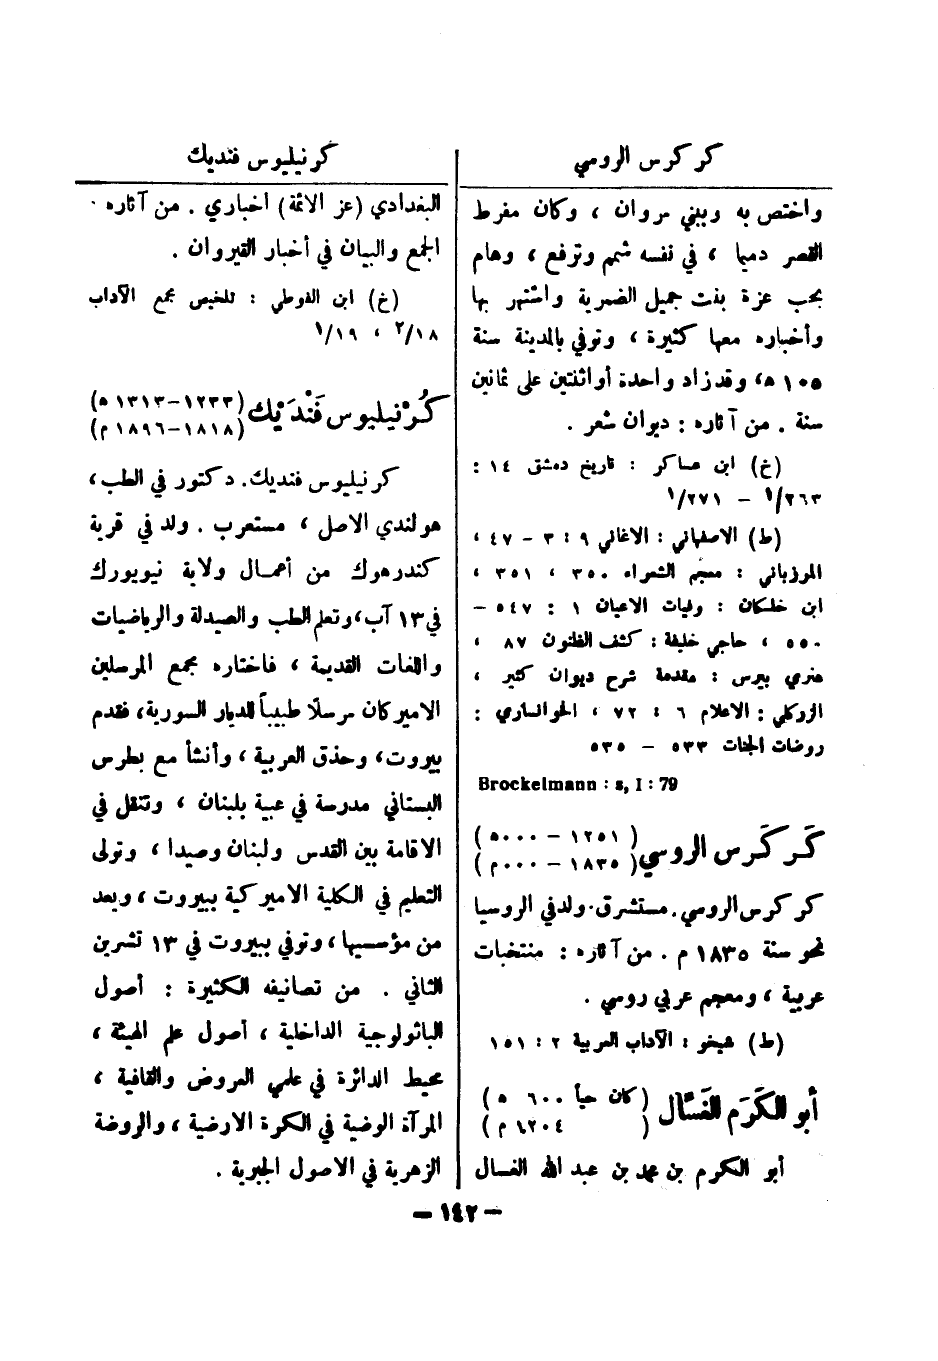 كركرس الروسي
واختص به وببني مروان ، وكان مفرط
القصر دميا ، في نفسه شمم وترفع ، وهام
بحب عزة بنت جميل الضمرية واشتهر بها
وأخباره معها كثيرة ، وتوفي بالمدينة سنة
١٠٥ ه، وقدزاد واحدة أواثنتين على ثمانين
سنة . من آثاره : ديوان شعر .
(خ) ابن عساكر : تاريخ دمشق ١٤ :
٢٦٣/١ – ٢٧١/١
(ط) الاصفهاني : الاغاني ٩ : ٣ – ٤٧ ،
المرزباني : معجم الشعراء ٣٥٠ ، ٣٥١ ،
ابن خلكان : وفيات الاعيان ١ : ٥٤٧ –
٥٥٠ ، حاجي خليفة : كشف الظنون ٨٧ ،
هنري بيرس : مقدمة شرح ديوان كثير ،
الزركلي : الاعلام ٦ : ٧٢ ، الخوانساري :
روضات الجنات ٥٣٣ – ٥٣٥
Brockelmann : s, I : 79
كَركَرس الروسي (١٢٥١ – ٠٠٠٠ ه)
(١٨٣٥ – ٠٠٠ م)
كركرس الروسي. مستشرق. ولدفي الروسيا
نحو سنة ١٨٣٥ م . من آثاره : منتخبات
عربية ، ومعجم عربي روسي .
(ط) شيخو : الآداب العربية ٢ : ١٥١
أبو الكَرَم الغَسَّال (كان حياً ٦٠٠ ه)
(١٢٠٤ م)
أبو الكرم بن محمد بن عبد الله الغسال
كرنيليوس فنديك
البغدادي (عز الائمة) أخباري . من آثاره .
الجمع والبيان في أخبار القيروان .
(خ) ابن الفوطي : تلخيص مجمع الآداب
٢/١٨ ، ١/١٩
كُرْنيليوس فَنْدَيْك (١٢٣٣–١٣١٣ ه)
(١٨١٨–١٨٩٦ م)
كرنيليوس فنديك. دكتور في الطب،
هولندي الاصل ، مستعرب . ولد في قرية
كندرهوك من أعمال ولاية نيويورك
في ١٣ آب، وتعلم الطب والصيدلة والرياضيات
واللغات القديمة ، فاختاره مجمع المرسلين
الاميركان مرسلًا طبيباً للديار السورية، فقدم
بيروت، وحذق العربية ، وأنشأ مع بطرس
البستاني مدرسة في عبية بلبنان ، وتنقل في
الاقامة بين القدس ولبنان وصيدا ، وتولى
التعليم في الكلية الاميركية ببيروت ، ويعد
من مؤسسيها ، وتوفي ببيروت في ١٣ تشرين
الثاني . من تصانيفه الكثيرة : أصول
الباثولوجية الداخلية ، أصول علم الهيئة ،
محيط الدائرة في علمي العروض والقافية ،
المرآة الوضية في الكرة الارضية ، والروضة
الزهرية في الاصول الجبرية .
– ١٤٢ –